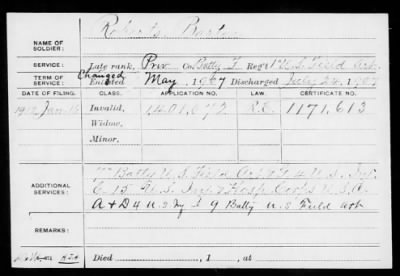 NAME OF SOLDIER: Roberts, Bart
SERVICE: Late rank, Priv Co. Batty F Reg't 1" U.S. Field Art.
TERM OF SERVICE: Changed Enlisted May, 1907 Discharged July 24, 1907
DATE OF FILING. CLASS. APPLICATION NO. LAW. CERTIFICATE NO.
1912 Jan. Invalid, 1401.672 1171.613
Widow,
Minor,
Batty U.S. Field Art 4 U.S. Inf.
ADDITIONAL SERVICES: 15 U.S. Inf. & Hosp. Corps U.S.A.
A + D 4 U.S. 9 Batty U.S. Field Art
REMARKS:
Died , 1 , at